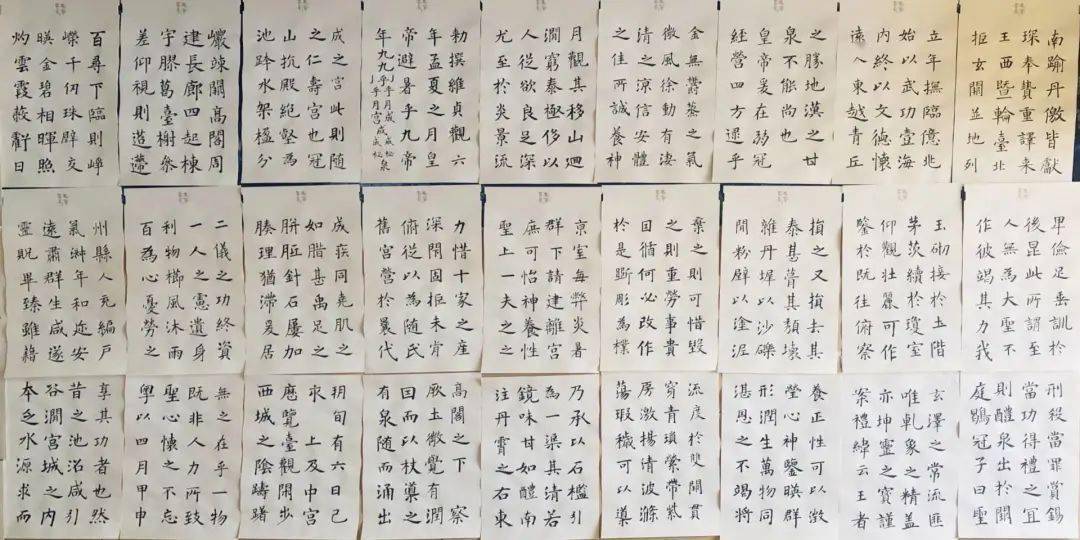 勑撰維貞觀六
年孟夏之月皇
帝避暑乎九帝
成之宮此則隨
之仁壽宮也冠
山抗殿絕壑為
池跨水架楹分
巘竦闕高閣周
建長廊四起棟
宇膠葛臺榭參
差仰視則迢遰
百尋下臨則崢
嶸千仞珠壁交
暎金碧相暉照
灼雲霞蔽虧日
月觀其移山迴
澗窮泰極侈以
人從欲良足深
尤至於炎景流
金無鬱蒸之氣
微風徐動有淒
清之涼信安體
之佳所誠養神
之勝地漢之甘
泉不能尚也
皇帝爰在弱冠
經營四方逮乎
立年撫臨億兆
始以武功壹海
內終以文德懷
遠人東越青丘
南踰丹徼皆獻
琛奉贄重譯來
王西暨輪臺北
拒玄闕並地列
州縣人充編戶
氣淋年和迩安
遠肅群生咸遂
靈貺畢臻雖藉
二儀之功終資
一人之慮遺身
利物櫛風沐雨
百為心憂勞之
成疾同堯肌之
如腊甚禹足之
胼胝針石屢加
腠理猶滯爰居
京室每弊炎暑
群下請建離宮
庶可怡神養性
聖上一夫之
力惜十家之產
深閇固拒未肯
俯從以為隨氏
舊宮營於曩代
棄之則可惜毀
之則重勞事貴
因循何必改作
於是斲彫為樸
損之又損去其
泰甚葺其頹壞
雜丹墀以沙礫
間粉壁以塗泥
玉砌接於土階
茅茨續於瓊室
仰觀壯麗可作
鑒於既往俯察
卑儉足垂訓於
後昆此所謂至
人無為大聖不
作彼竭其力我
享其功者也然
昔之池沼咸引
谷澗宮城之內
本乏水源求而
無之在乎一物
既非人力所致
聖心懷之不忘
粵以四月甲申
朔旬有六日己
求 上及中宮
歷覽臺觀閑步
西城之陰躊躇
高閣之下 察
厥土微覺有潤
因而以杖導之
有泉隨而涌出
乃承以石檻引
為一渠其清若
鏡味甘如醴南
注丹霄之右東
流度於雙闕貫
穿青瑣縈帶紫
房激揚清波滌
蕩瑕穢可以導
養正性可以澂
瑩心神鑒暎群
形潤生萬物同
湛恩之不竭將
玄澤之常流匪
唯乾象之精盖
亦坤靈之寶謹
案禮緯云王者
刑殺當罪賞錫
當功得禮之宜
則醴泉出於闕
庭鶡冠子曰聖